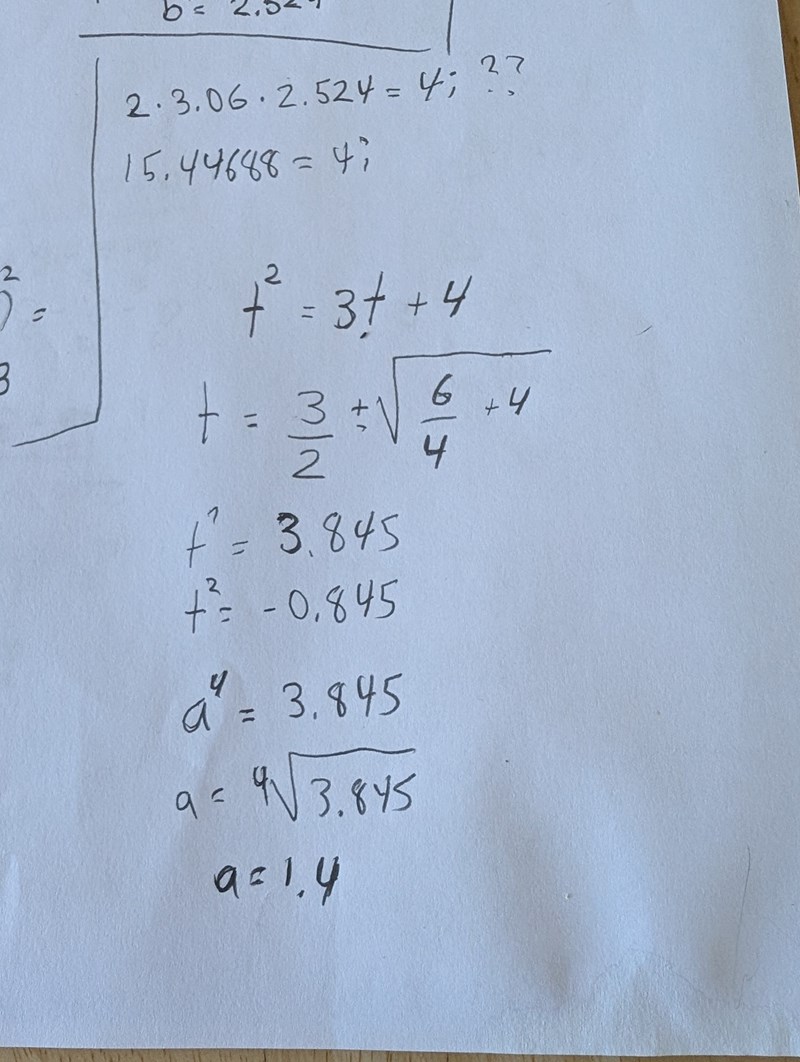 b = 2.524
2 · 3.06 · 2.524 = 4; ??
15.44688 = 4;
2
) =
3
t² = 3t + 4
t = 3/2 ± √(6/4 + 4)
t¹ = 3.845
t² = -0.845
a⁴ = 3.845
a = ⁴√3.845
a = 1.4